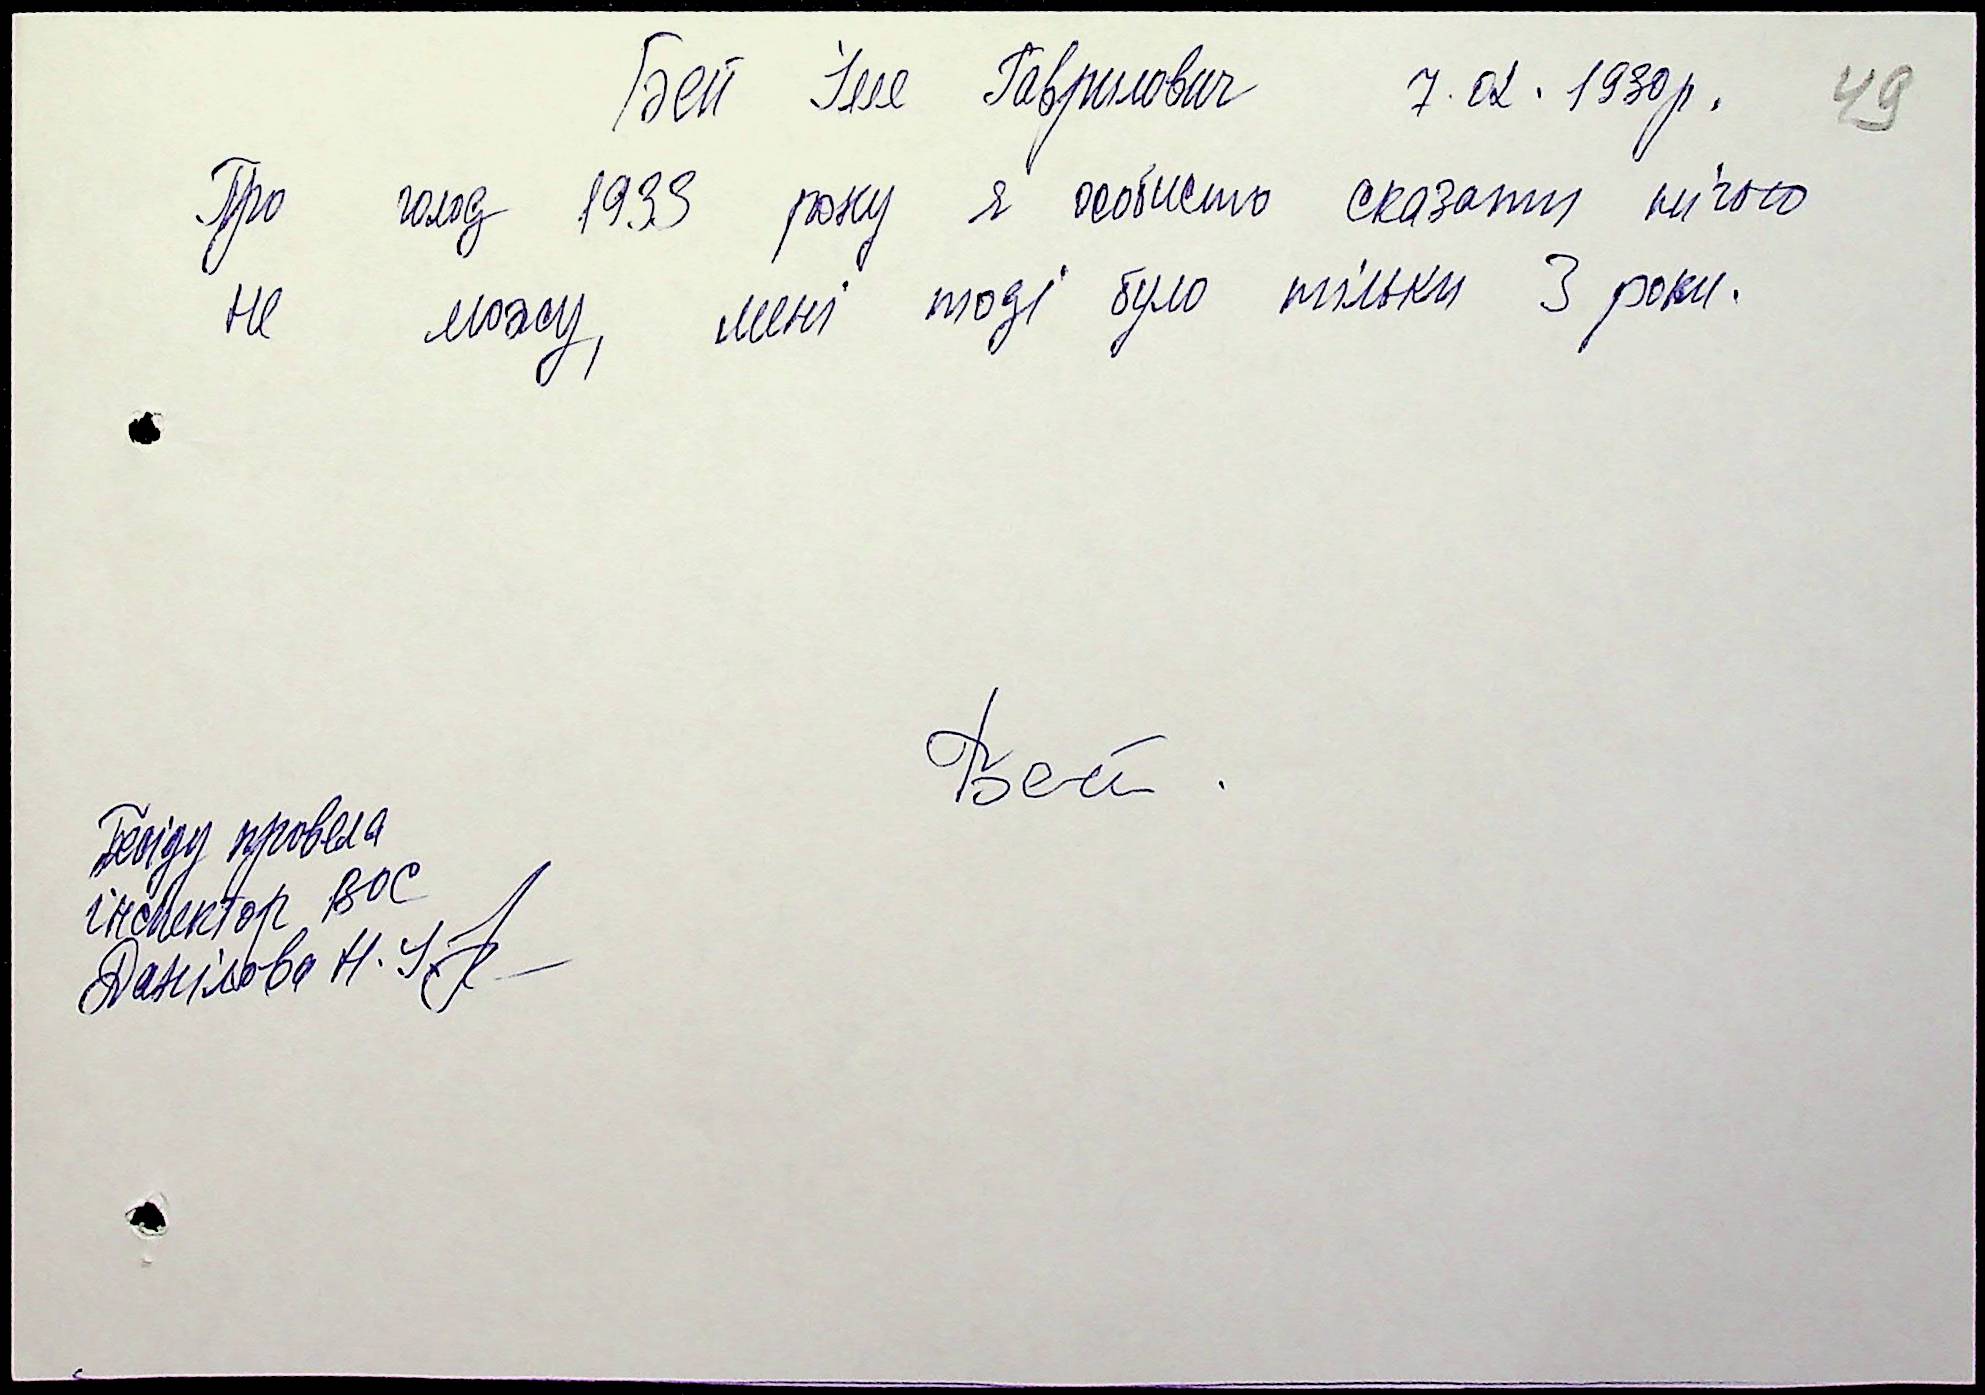 Бей Ілле Гаврилович 7.02.1930р. 49
Про голод 1933 року я особисто сказати нічого
не можу, мені тоді було тільки 3 роки.
Бей.
Бесіду провела
інспектор ВОС
Данілова Н.І.